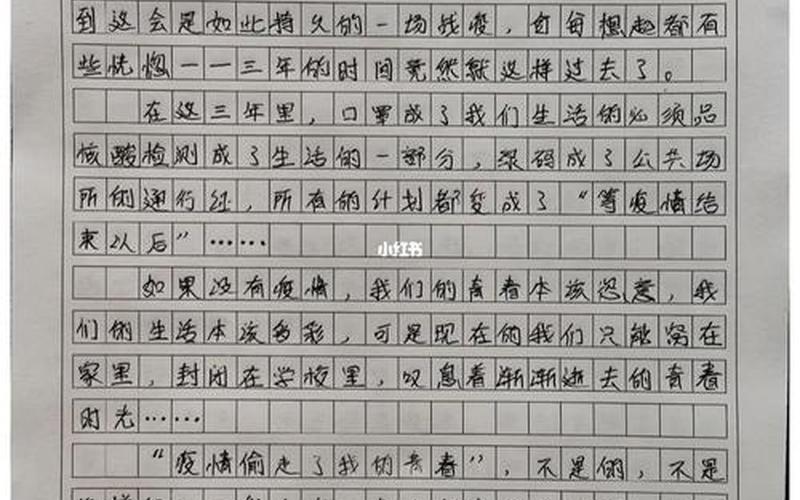 到这会是如此持久的一场战疫，每每想起都有
些恍惚——三年的时间竟然就这样过去了。
在这三年里，口罩成了我们生活的必须品
核酸检测成了生活的一部分，绿码成了公共场
所的通行证，所有的计划都变成了“等疫情结
束以后”……
小红书
如果没有疫情，我们的青春本该恣意，我
们的生活本该多彩，可是现在的我们只能窝在
家里，封闭在学校里，叹息着渐渐逝去的青春
时光……
“疫情偷走了我的青春”，不是的，不是